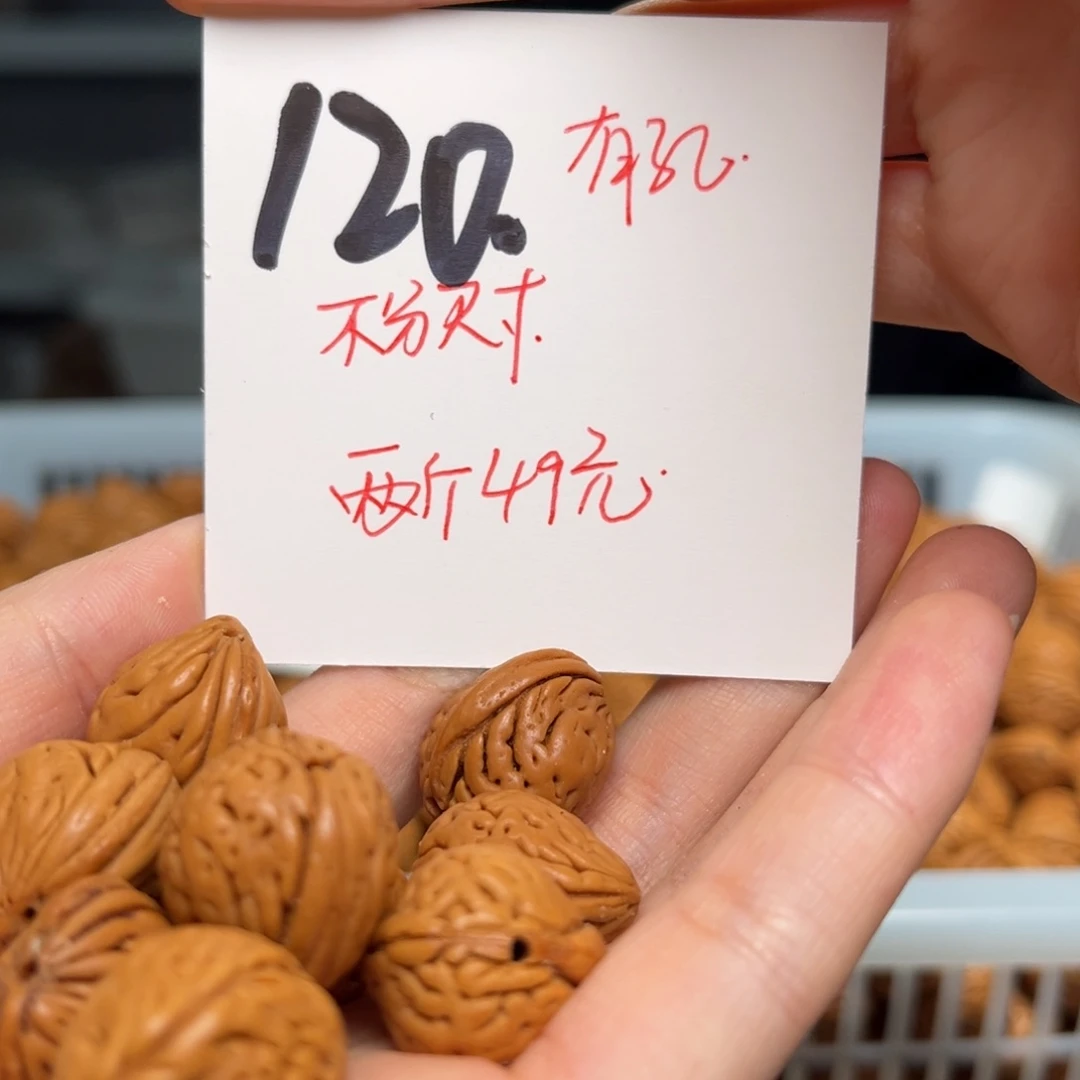 120. 有孔.
不分尺寸.
两斤49元.